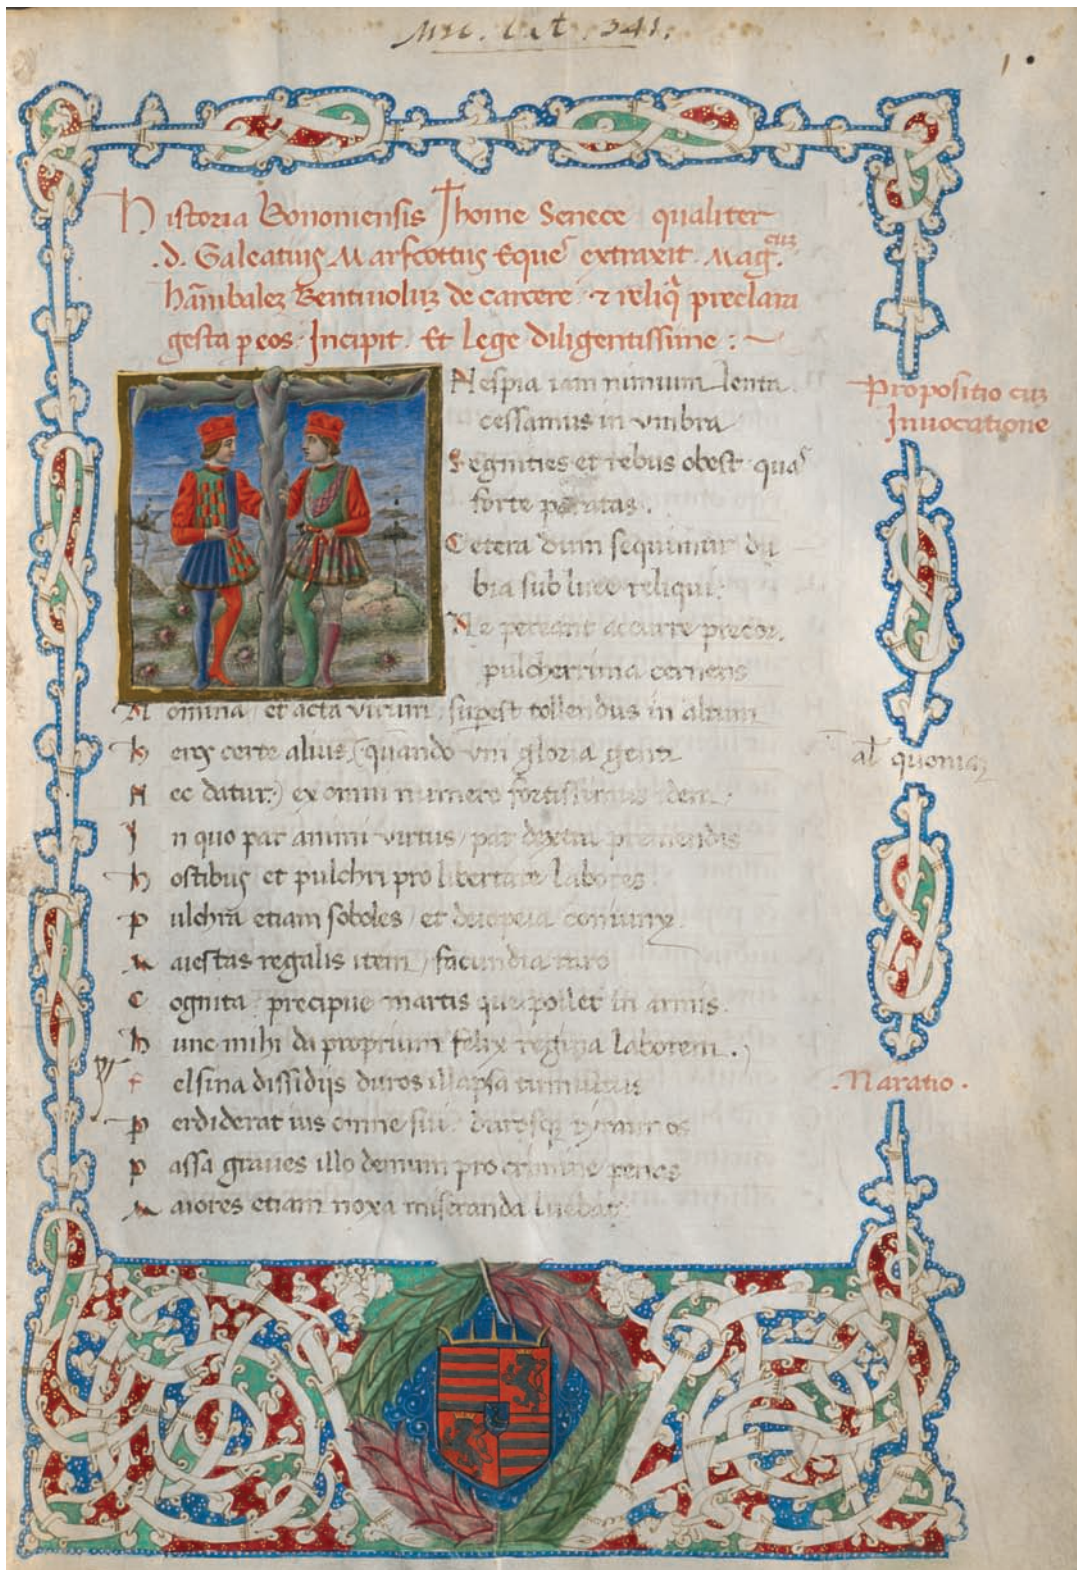 1
Historia Bononiensis Thome Senece qualiter
.d. Galeatius Marscottus Eques extraxit Mag.cuz
hānibalez Bentiuoluz de carcere · & reliq̄ preclara
gesta p eos · Incipit · Et Lege diligentissime : ~
Nespia iam nimium lenta
cessamus in vmbra
Segnities et rebus obest quas
forte paratas .
Cetera dum sequimur du
bia sub luce reliqui .
Ne pereant accurre precor .
pulcherrima cernens
Propositio cuz
Inuocatione
Nomina / et acta virum / supest tollendus in altum
heros certe alius / (quando vni gloria genti
al' quoniaz
Nec datur:) ex omni numero fortissimus idem /
In quo par animi virtus / par dextra premendis
hostibus et pulchri pro libertate labores .
pulchra etiam soboles / et deiopeia coniunx .
Maiestas regalis item / facundia raro
Cognita : precipue martis que pollet in armis .
hunc mihi da proprium felix regina laborem . )
felsina dissidijs duros illapsa tumultus
. Naratio .
perdiderat ius omne sui . durosq; tyrannos
passa graues illo demum pro crimine penas
Maiores etiam noxa miseranda luebat